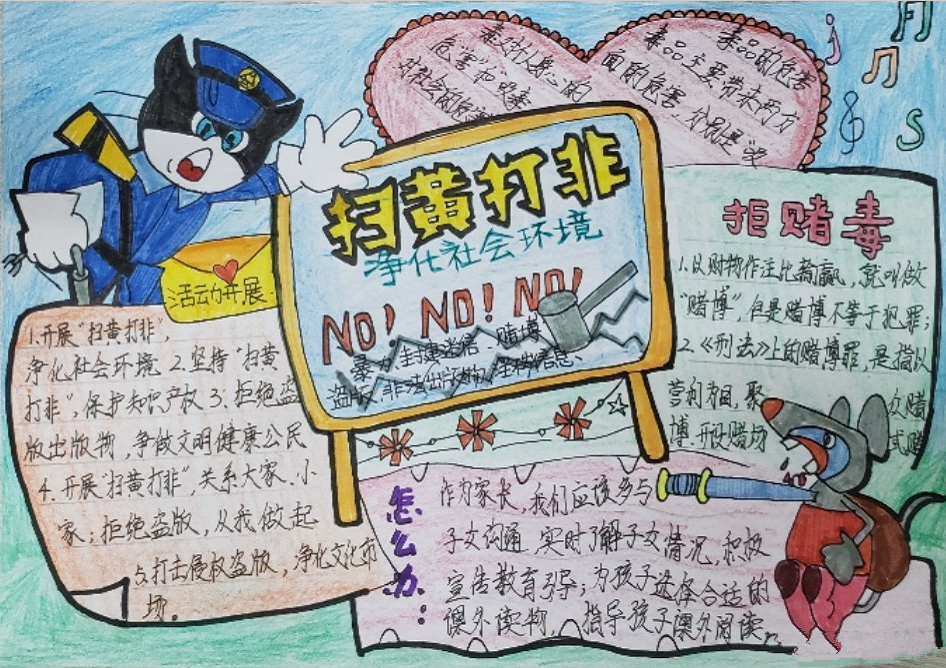 毒品对人身心的
危害和吸毒
对社会的危害
毒品的危害
毒品主要带来两方
面的危害,分别是“吸
扫黄打非
净化社会环境
NO! NO! NO!
暴力,封建迷信 赌博
盗版 非法出版物,淫秽信息、
活动开展
1.开展“扫黄打非”,
净化社会环境 2.坚持“扫黄
打非”,保护知识产权 3.拒绝盗
版出版物,争做文明健康公民
4.开展“扫黄打非”,关系大家、小
家;拒绝盗版,从我做起
5.打击侵权盗版,净化文化市
场。
拒赌毒
1.以财物作注比输赢,就叫做
“赌博”,但是赌博不等于犯罪;
2.《刑法》上的赌博罪,是指以
营利为目,聚 众赌
博、开设赌场 式赌
怎么办:
作为家长,我们应该多与
子女沟通 实时了解子女情况,积极
宣告教育引导;为孩子选择合适的
课外读物, 指导孩子课外阅读。